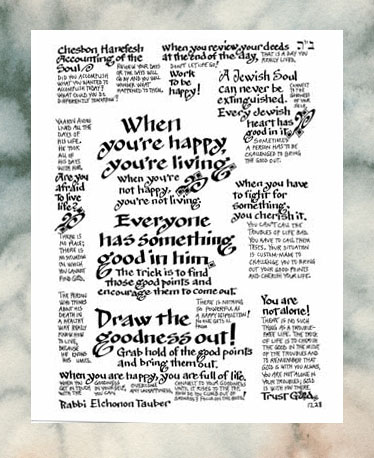 Cheshon Hanefesh
Accounting of the
Soul
DID YOU ACCOMPLISH
WHAT YOU WANTED TO
ACCOMPLISH TODAY?
WHAT COULD YOU DO
DIFFERENTLY TOMORROW?
REVIEW YOUR DAYS
OR THE DAYS WILL
GO AWAY AND YOU WILL
WONDER WHAT
HAPPENED TO THEM.
when you review your deeds
at the end of the day,
THAT IS A DAY YOU
REALLY LIVED.
DON'T LET LIFE GO!
Work
to be
happy!
ב"ה
A Jewish Soul
can never be
extinguished.
Every Jewish
heart has
good in it.
SOMETIMES
A PERSON HAS TO BE
CHALLENGED TO BRING
THE GOOD OUT.
CONNECT
TO THE
GOODNESS
OF YOUR
SOUL.
LIVED ALL THE
DAYS OF
HIS LIFE.
HE TOOK
ALL OF
HIS DAYS
WITH HIM.
Are you
afraid
to live
life?
THERE
IS NO
PLACE; THERE
IS NO SITUATION
IN WHICH
YOU CANNOT
FIND GOD.
THE PERSON
WHO THINKS
ABOUT HIS
DEATH IN
A HEALTHY
WAY REALLY
KNOWS HOW
TO LIVE,
BECAUSE
HE KNOWS
HIS LIMITS.
When
you're happy,
you're living.
when you're
not happy,
you're not living.
Everyone
has something
good in him.
The trick is to find
those good points and
encourage them to come out.
when you have
to fight for
something,
you cherish it.
YOU CAN'T CALL THE
TROUBLES OF LIFE BAD.
YOU HAVE TO CALL THEM
TESTS. YOUR SITUATION
IS CUSTOM-MADE TO
CHALLENGE YOU TO BRING
OUT YOUR GOOD POINTS
AND CHERISH YOUR LIFE.
Draw the
goodness out!
Grab hold of the good points
and bring them out.
THERE IS NOTHING
SO POWERFUL AS
You are
not alone!
THERE IS NO SUCH
THING AS A TROUBLE-
FREE LIFE. THE TRICK
OF LIFE IS TO CHERISH
THE GOOD IN THE MIDST
OF THE TROUBLES AND
TO REMEMBER THAT
GOD IS WITH YOU ALWAYS.
YOU ARE NOT ALONE IN
YOUR TROUBLES; GOD
IS WITH YOU THERE.
Trust God.
when you are happy, you are full of life.
WHEN YOU
GET IN TOUCH
WITH THE
GOODNESS
IN YOUR SELF,
YOU CAN
OVERCOME
ANY UNHAPPINESS.
CONNECT TO YOUR GOODNESS
Rabbi Elchonon Tauber